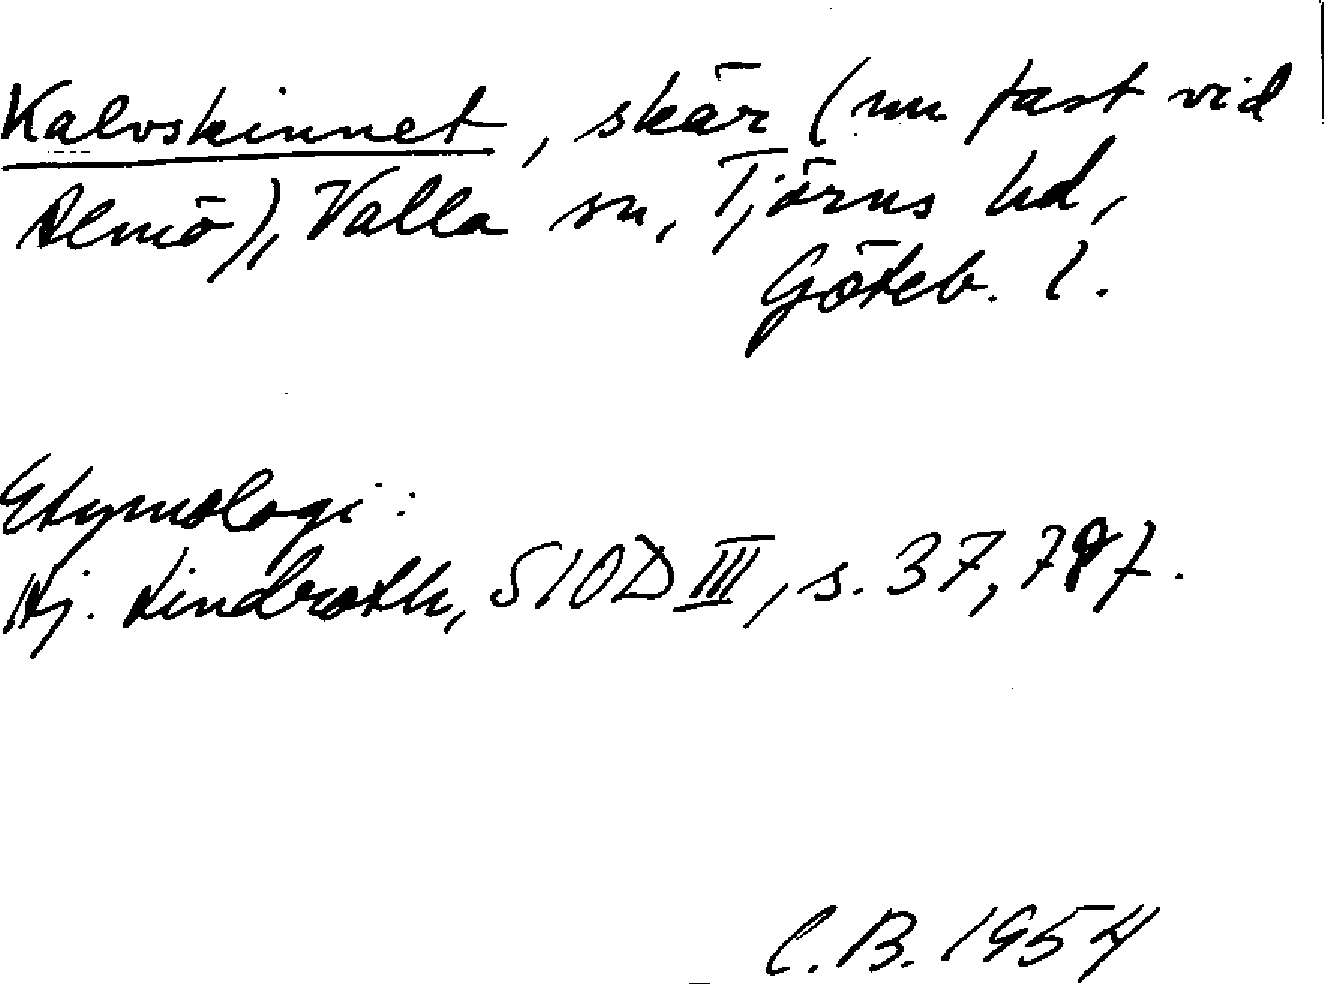 Kalvskinnet, skär (nu fast vid
Almö), Valla sn, Tjörns hd,
Göteb. l.
Etymologi:
Hj. Lindroth, SIOD III, s. 37, 78 f.
C.B. 1954